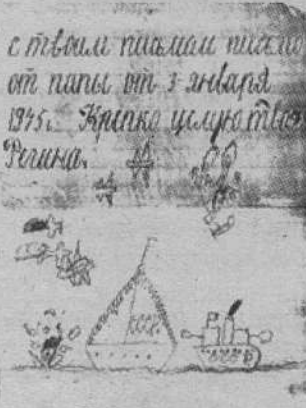 с твоим письмом письмо
от папы от 3 января
1945г. Крепко целую твоя
Регина.
СССР
СССР